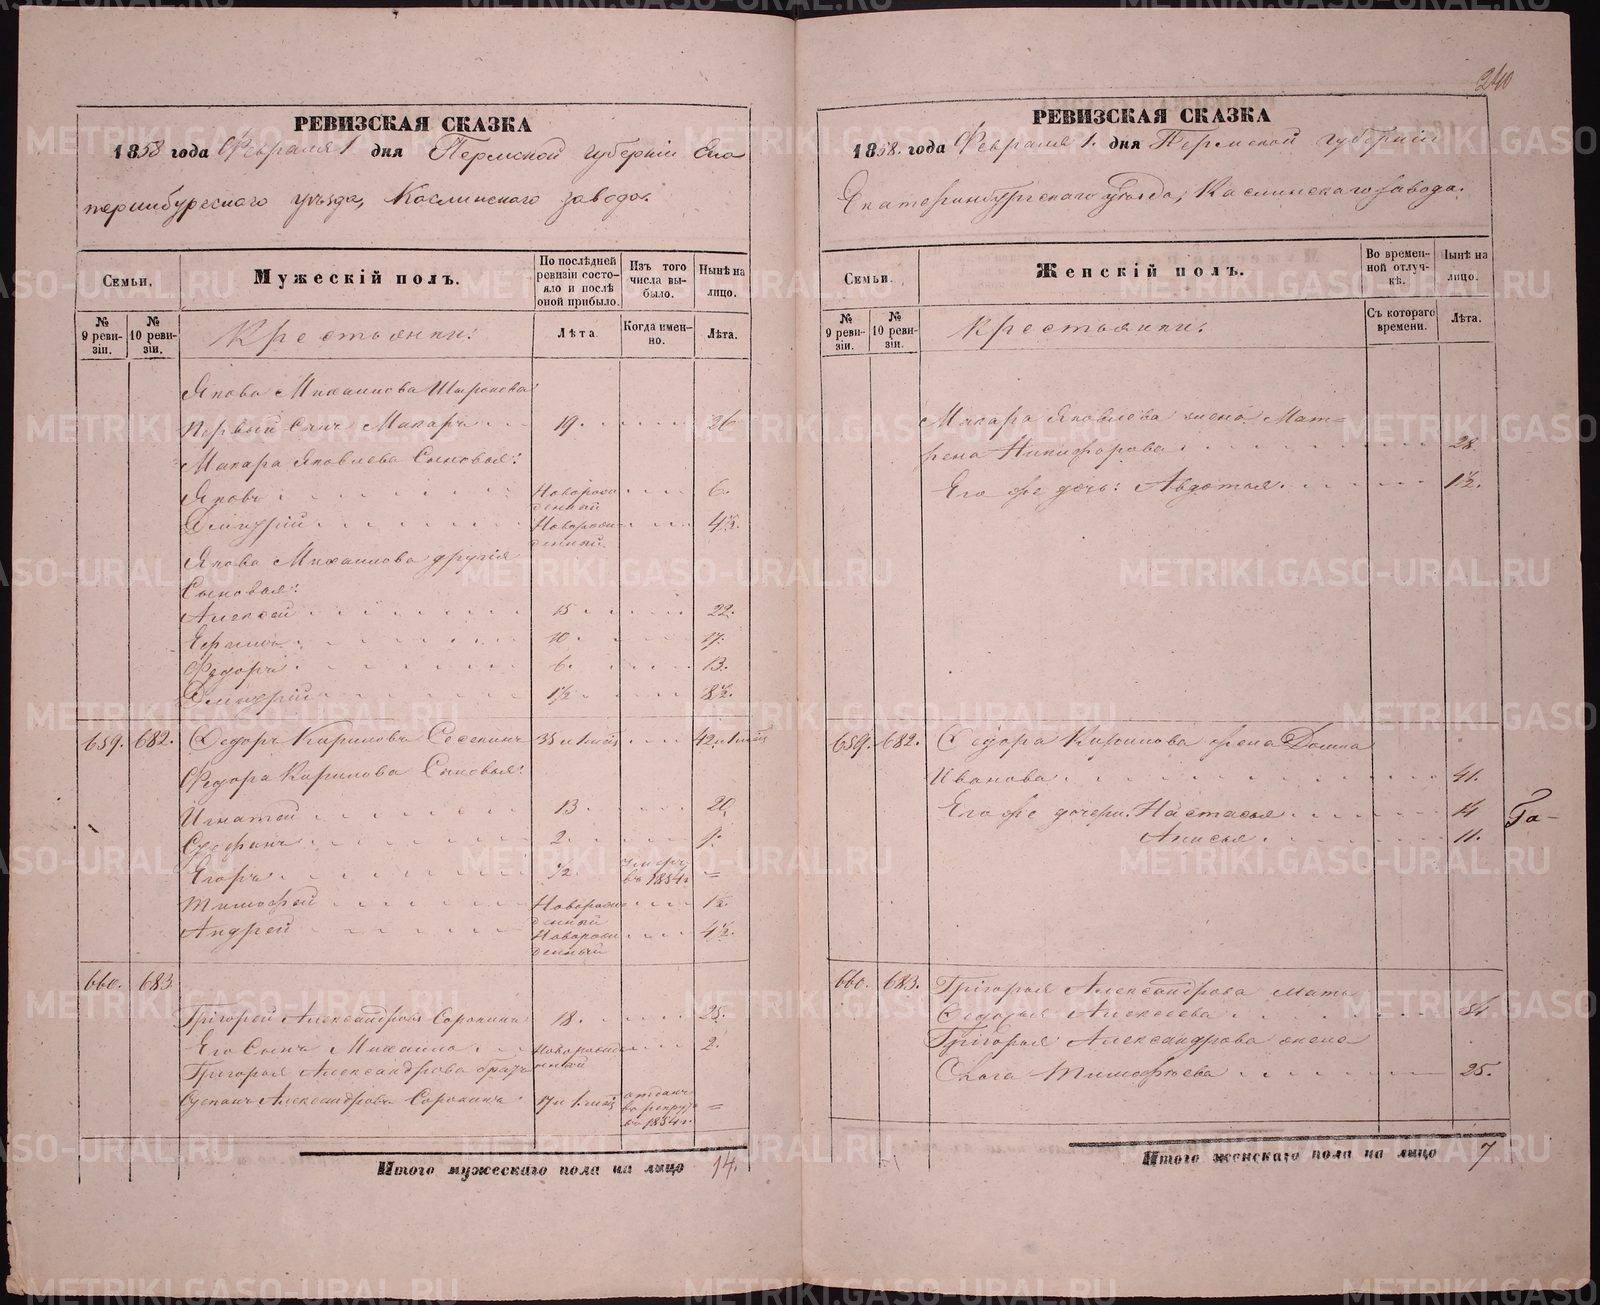 240
РЕВИЗСКАЯ СКАЗКА
1858 года Февраля 1 дня Пермской губерніи Ека
теринбургскаго уѣзда, Каслинскаго завода.
Семьи.
Мужескій полъ.
По послѣдней ревизіи состояло и послѣ оной прибыло.
Изъ того числа выбыло.
Нынѣ на лицо.
№ 9 ревизіи.
№ 10 ревизіи.
Крестьянки:
Лѣта.
Когда именно.
Лѣта.
Якова Михаилова
Первый Сынъ Макаръ 19. 26
Макара Яковлева Сыновья:
Яковъ Новорожденный 6.
Дмитрій Новорожденный 4½.
Якова Михаилова другія
Сыновья:
Алексей 15 22.
10. 17.
Федоръ 6. 13.
Дмитрій 1½ 8½.
659. 682. Федоръ Кириловъ 35 и 1 мѣс 42 и 1 мѣс
Федора Кирилова Сыновья:
Игнатей 13. 20.
2. 9.
Егоръ ½ умеръ въ 1854г =
Тимофей Новорожденный 1½
Андрей Новорожденный 4½.
660. 683
Григорей Александровъ Сорокинъ 18. 25.
Его Сынъ Михаило Новорожденный 2.
Григорья Александрова братъ
Степанъ Александровъ Сорокинъ 17 и 1 мѣс отданъ въ рекруты въ 1854г. =
Итого мужескаго пола на лицо 14.
РЕВИЗСКАЯ СКАЗКА
1858. года Февраля 1. дня Пермской губерніи
Екатеринбургскаго уѣзда, Каслинскаго завода.
Семьи.
Женскій полъ.
Во временной отлучкѣ.
Нынѣ на лицо.
№ 9 ревизіи.
№ 10 ревизіи.
Крестьянки:
Съ котораго времени.
Лѣта.
Макара Яковлева жена Мат=
рена Никифорова 28.
Его же дочь: Авдотья 1½.
659. 682. Федора Кирилова жена Домна
Иванова 41.
Его же дочери. Настасья 14
Анисья 11.
Га-
660. 683. Григорья Александрова мать
Федосья Алексеева
Григорья Александрова жена
Тимофеева 25.
Итого женскаго пола на лицо 7
METRIKI.GASO-URAL.RU